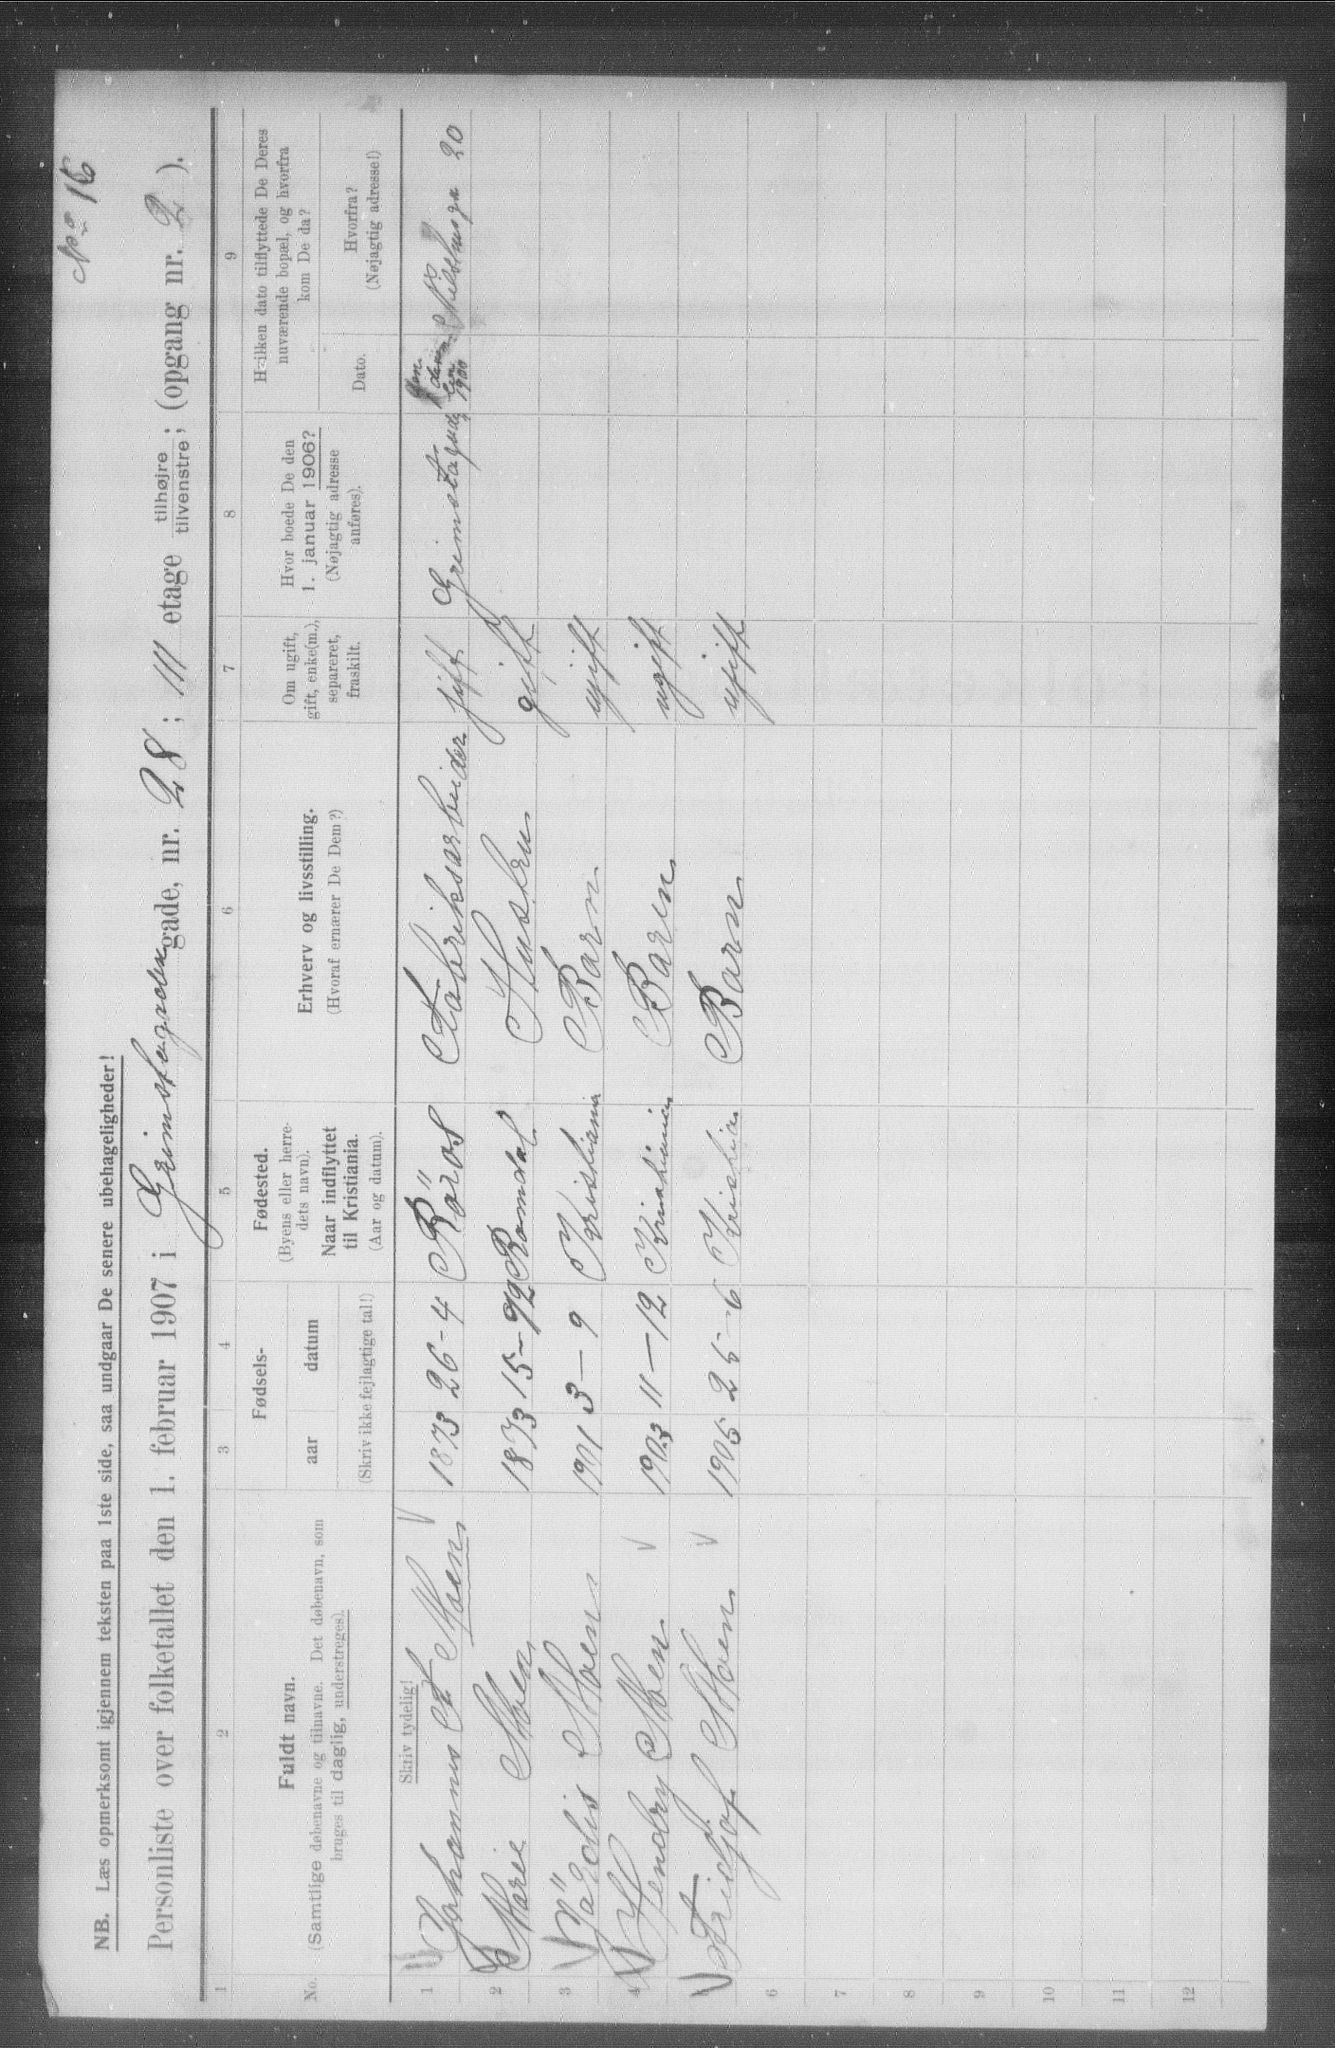 No 16
NB. Læs opmerksomt igjennem teksten paa 1ste side, saa undgaar De senere ubehageligheder!
Personliste over folketallet den 1. februar 1907 i Grimstagaden gade, nr. 28; III etage tilhøjre / tilvenstre; (opgang nr. 2).
1 2 3 4 5 6 7 8 9
No.
Fuldt navn.
(Samtlige døbenavne og tilnavne. Det døbenavn, som
bruges til daglig, understreges).
Fødsels-
aar datum
(Skriv ikke fejlagtige tal!)
Fødested.
(Byens eller herre-
dets navn).
Naar indflyttet
til Kristiania.
(Aar og datum).
Erhverv og livsstilling.
(Hvoraf ernærer De Dem?)
Om ugift,
gift, enke(m.),
separeret,
fraskilt.
Hvor boede De den
1. januar 1906?
(Nøjagtig adresse
anføres).
Hvilken dato tilflyttede De Deres
nuværende bopæl, og hvorfra
kom De da?
Dato.
Hvorfra?
(Nøjagtig adresse!)
Skriv tydelig!
1 Johannes Moen 1873 26-4 Röros Fabriksarbeider gift Grimstagad 1900 20
2 Marie Moen 1873 15-12 Romdal Hustru gift
3 Jördis Moen 1901 3-9 Kristiania Barn ugift
4 Hendry Moen 1903 11-12 Kristiania Baren ugift
5 Fridjof Moen 1905 25-6 Kristia Barn ugift
6
7
8
9
10
11
12